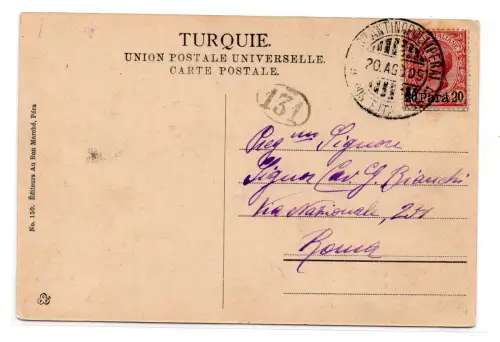 TURQUIE.
UNION POSTALE UNIVERSELLE.
CARTE POSTALE.
COSTANTINOPOLI (PERA)
20. AG
20 Para 20
131
Preg mo Signore
Signor Cav. G. Bianchi
Via Nazionale, 201
Roma
No. 150. Éditeurs Au Bon Marché, Péra